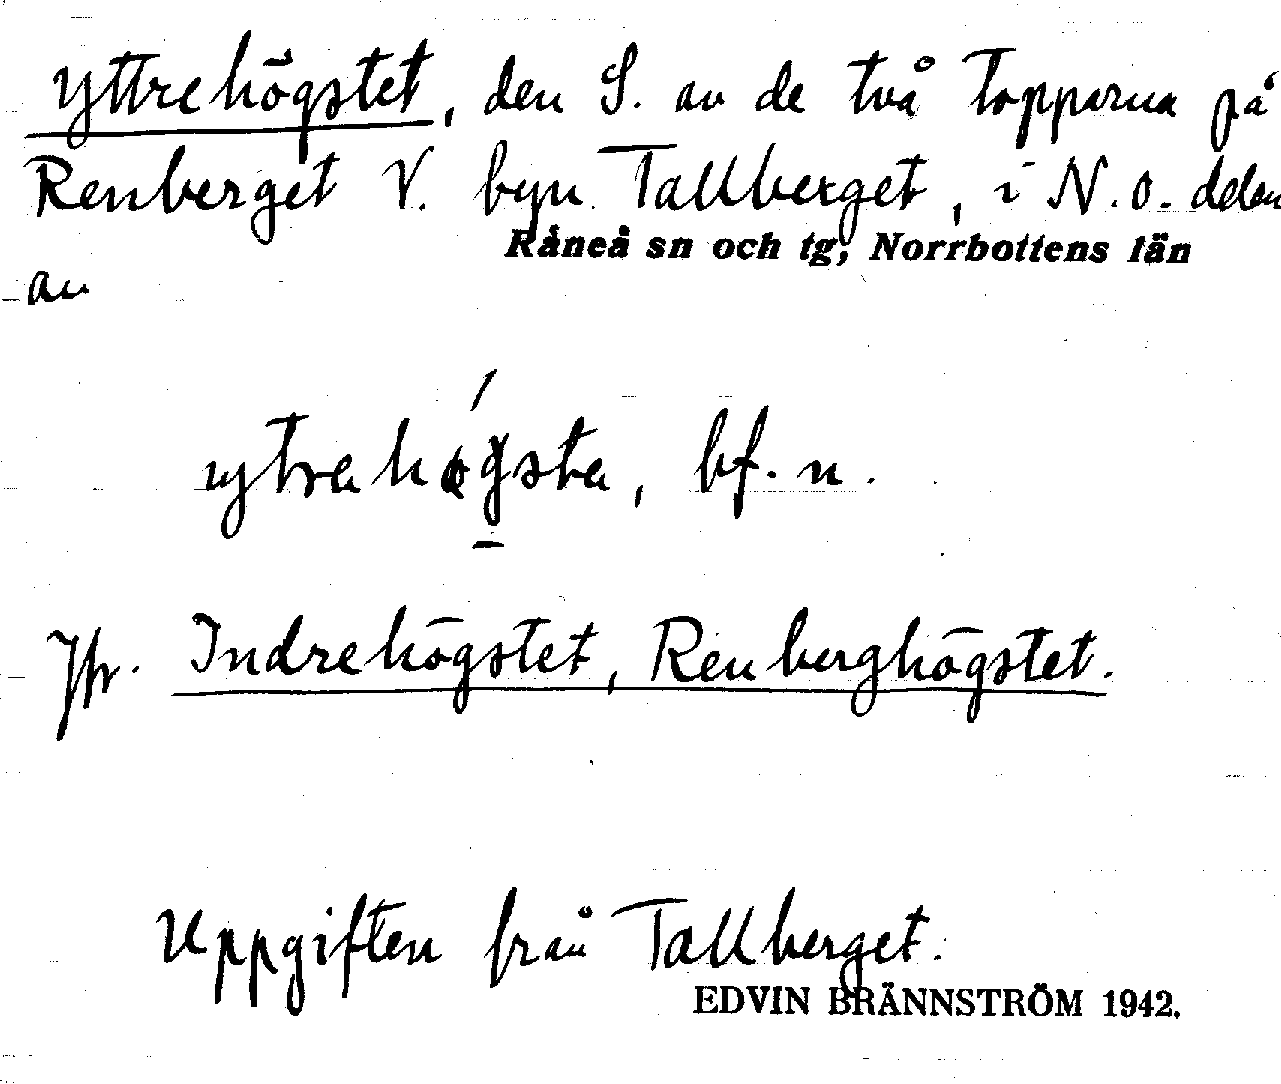 Yttrehögstet, den S. av de två topparna på
Renberget V. byn Tallberget, i N.O. delen
Råneå sn och tg, Norrbottens län
av
ytrahǿgsta, bf. n.
Jfr. Indrehögstet, Renberghögstet.
Uppgiften från Tallberget.
EDVIN BRÄNNSTRÖM 1942.